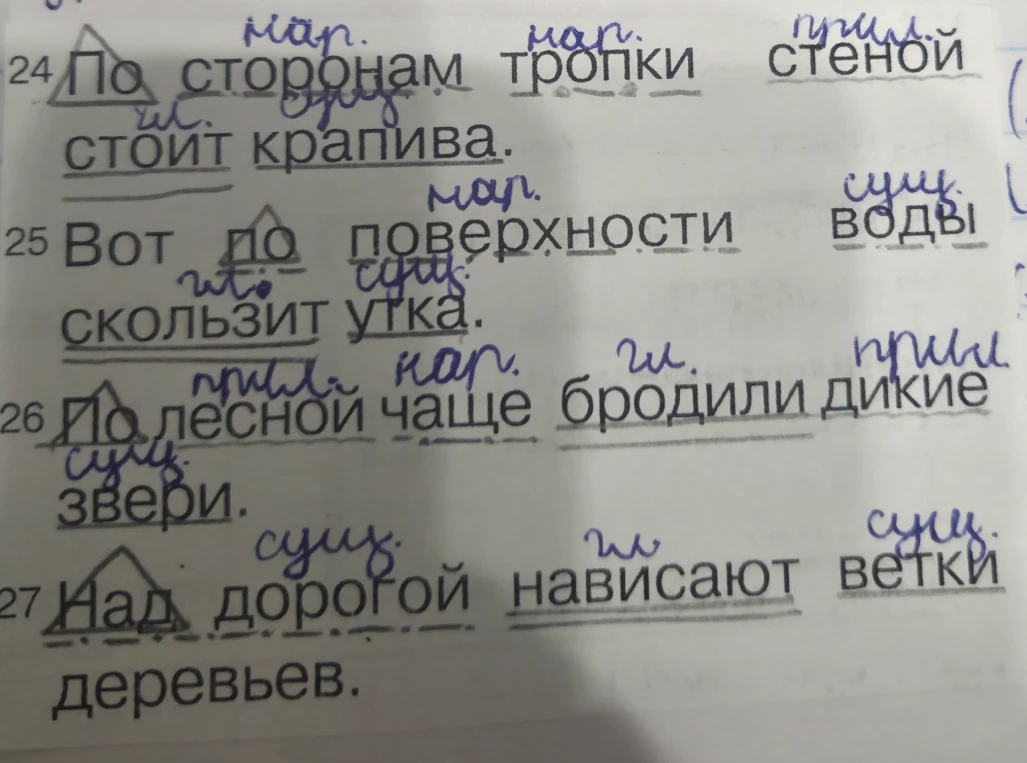 нар. нар. прил.
24 По сторонам тропки стеной
гл. сущ.
стоит крапива.
нар. сущ.
25 Вот по поверхности воды
гл. сущ.
скользит утка.
прил. нар. гл. прил
26 По лесной чаще бродили дикие
сущ.
звери.
сущ. гл. сущ.
27 Над дорогой нависают ветки
деревьев.